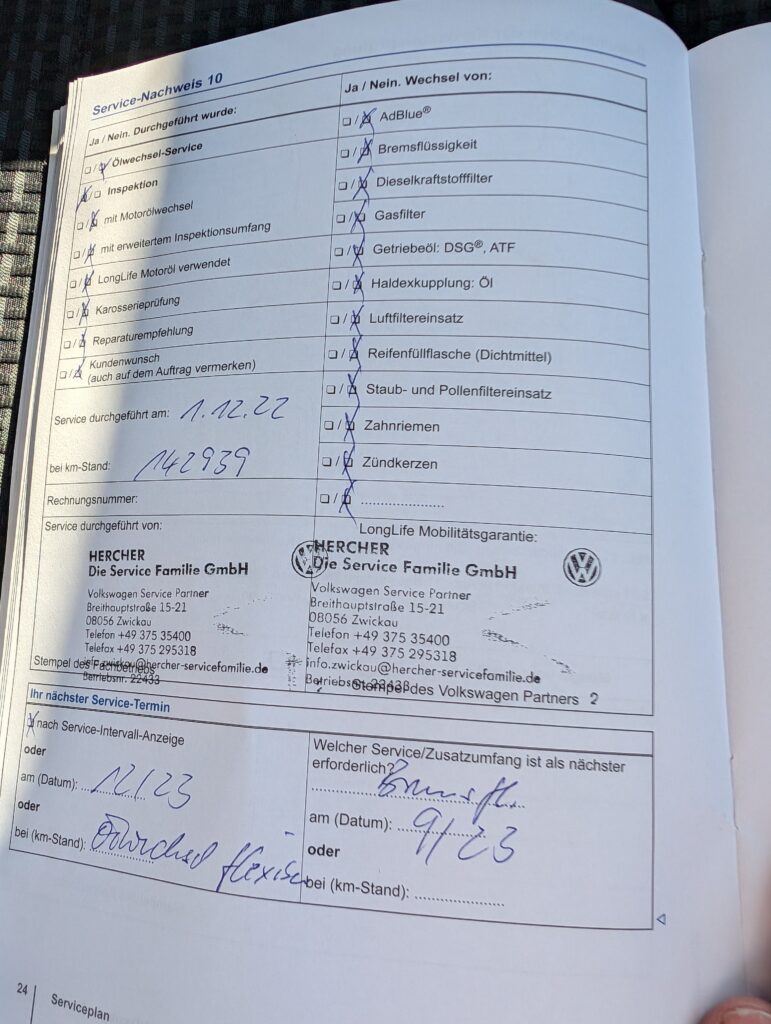 Service-Nachweis 10
Ja / Nein. Durchgeführt wurde:
Ölwechsel-Service
Inspektion
mit Motorölwechsel
mit erweitertem Inspektionsumfang
LongLife Motoröl verwendet
Karosserieprüfung
Reparaturempfehlung
Kundenwunsch
(auch auf dem Auftrag vermerken)
Service durchgeführt am: 1.12.22
bei km-Stand: 142939
Rechnungsnummer:
Ja / Nein. Wechsel von:
AdBlue®
Bremsflüssigkeit
Dieselkraftstofffilter
Gasfilter
Getriebeöl: DSG®, ATF
Haldexkupplung: Öl
Luftfiltereinsatz
Reifenfüllflasche (Dichtmittel)
Staub- und Pollenfiltereinsatz
Zahnriemen
Zündkerzen
Service durchgeführt von:
HERCHER
Die Service Familie GmbH
Volkswagen Service Partner
Breithauptstraße 15-21
08056 Zwickau
Telefon +49 375 35400
Telefax +49 375 295318
info.zwickau@hercher-servicefamilie.de
Stempel des Fachbetriebs
Betriebsnr. 22433
LongLife Mobilitätsgarantie:
HERCHER
Die Service Familie GmbH
Volkswagen Service Partner
Breithauptstraße 15-21
08056 Zwickau
Telefon +49 375 35400
Telefax +49 375 295318
info.zwickau@hercher-servicefamilie.de
Betriebsnr. 22433
Stempel des Volkswagen Partners 2
Ihr nächster Service-Termin
nach Service-Intervall-Anzeige
oder
am (Datum): 12/23
oder
bei (km-Stand): Ölwechsel flexibel
Welcher Service/Zusatzumfang ist als nächster
erforderlich?
Bremsfl.
am (Datum): 9/23
oder
bei (km-Stand):
24
Serviceplan